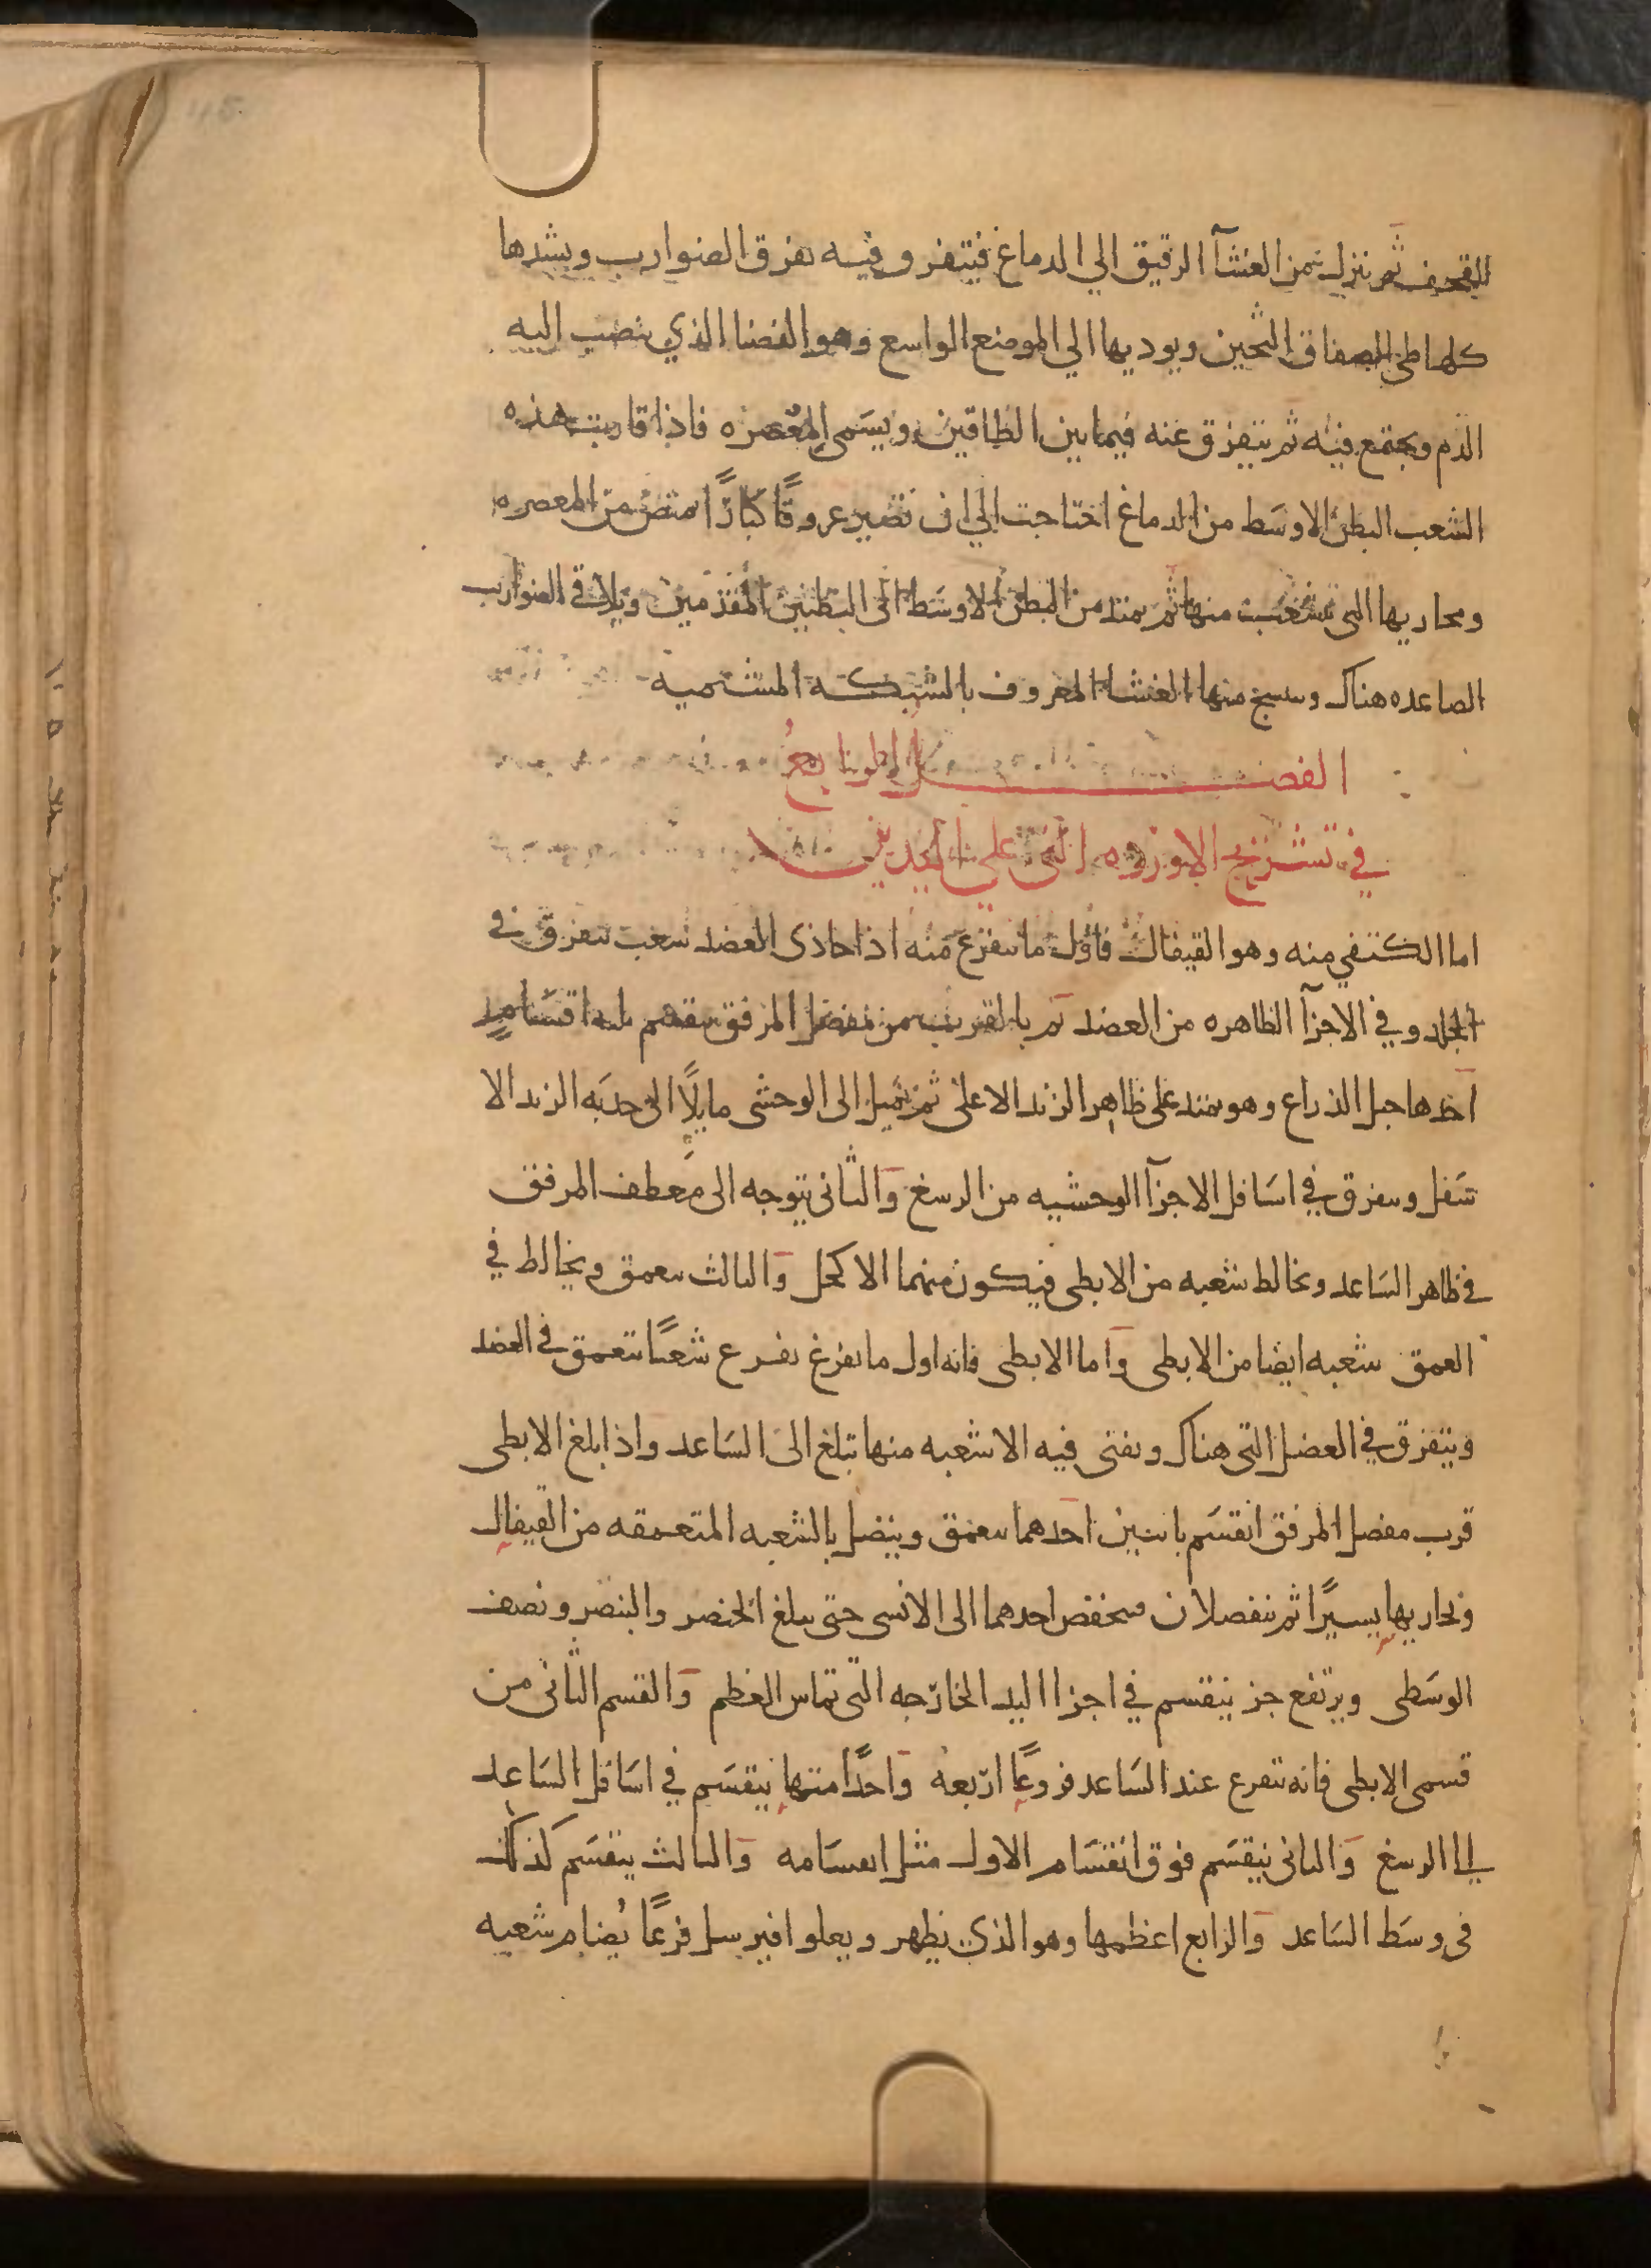 القحف ثم ينزل من الغشآ الرقيق الي الدماغ فيتفرق فيه تفرق الضوارب ويشدها
كلها طي الصفاق الثخين ويوديها الي الموضع الواسع وهو الفضا الذي ينصب اليه
الدم ويجتمع فيه ثم يتفرق عنه فيما بين الطاقين ويسَمى المعصره فاذا قاربت هذه
الشعب البطن الاوسَط من الدماغ احتاجت الي ان تصير عروقًا كبارًا تمتص من المعصره
ومجاريها التي تشعبت منها ثم يمتد من البطن الاوسَط الى البطنين المقدمين ويلاقي الضوارب
الصاعده هناك وينسج منها الغشا المعروف بالشبكه المشيميه
الفصل الرابع
في تشريح الاورده التي على اليدين
اما الكتفي منه وهو القيفال فاول ما يتفرع منه اذا حاذى العضد شعب تتفرق في
الجلد وفي الاجزآ الظاهره من العضد ثم بالقرب من مفصل المرفق ينقسم ثلثه اقسَام
احدها حبل الذراع وهو يمتد على ظاهر الزند الاعلى ثم يميل الى الوحشى مايلًا الى حدبَه الزند الا
سَفل ويتفرق في اسَافل الاجزآ الوحشيه من الرسغ وَالثانى يتوجه الى معطف المرفق
في ظاهر السَاعد ويخالط شعبه من الابطى فيكون منهما الاكحل وَالثالث يتعمق ويخالط في
العمق شعبه ايضا من الابطى وَاما الابطى فانه اول ما يفرع يفرع شعبًا تتعمق في العضد
ويتفرق في العضل التى هناك وتفنى فيه الا شعبه منها تبلغ الى السَاعد واذا بلغ الابطى
قرب مفصل المرفق انقسَم باثنين احدهما يتعمق ويتصل بالشعبه المتعمقه من القيفال
وتجاريها يسيرًا ثم ينفصلان فينخفض احدهما الى الانسى حتى يبلغ الخنصر والبنصر ونصف
الوسَطى ويرتفع جز ينقسم في اجزا اليد الخارجه التى تماس العظم وَالقسم الثانى من
قسمى الابطى فانه يتفرع عند السَاعد فروعًا اربعه وَاحدًا منها ينقسَم في اسَافل السَاعد
الى الرسغ وَالثانى ينقسَم فوق انقسَام الاول مثل انقسَامه وَالثالث ينقسَم كذلك
فى وسَط السَاعد وَالرابع اعظمها وهو الذي يظهر ويعلوا فيرسل فرعًا يُضام شعبه